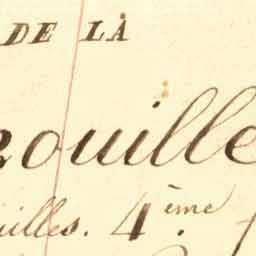 DE LA
ouille
uilles. 4ème